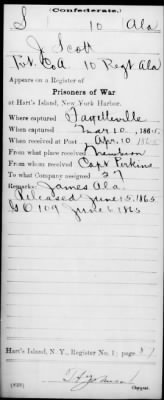 (Confederate.)
S 10 Ala
J Scott
Pvt. Co A 10 Regt Ala
Appears on a Register of
Prisoners of War
at Hart's Island, New York Harbor.
Where captured Fayetteville
When captured Mar 10, 1865
When received at Post Apr. 10 1865
From what place received Newbern
From whom received Capt Perkins
To what Company assigned 27
Remarks: James Ala
Released June 15, 1865
G.O. 109 June 6, 1865
Hart's Island, N. Y., Register No. 1; page 87
Copyist.